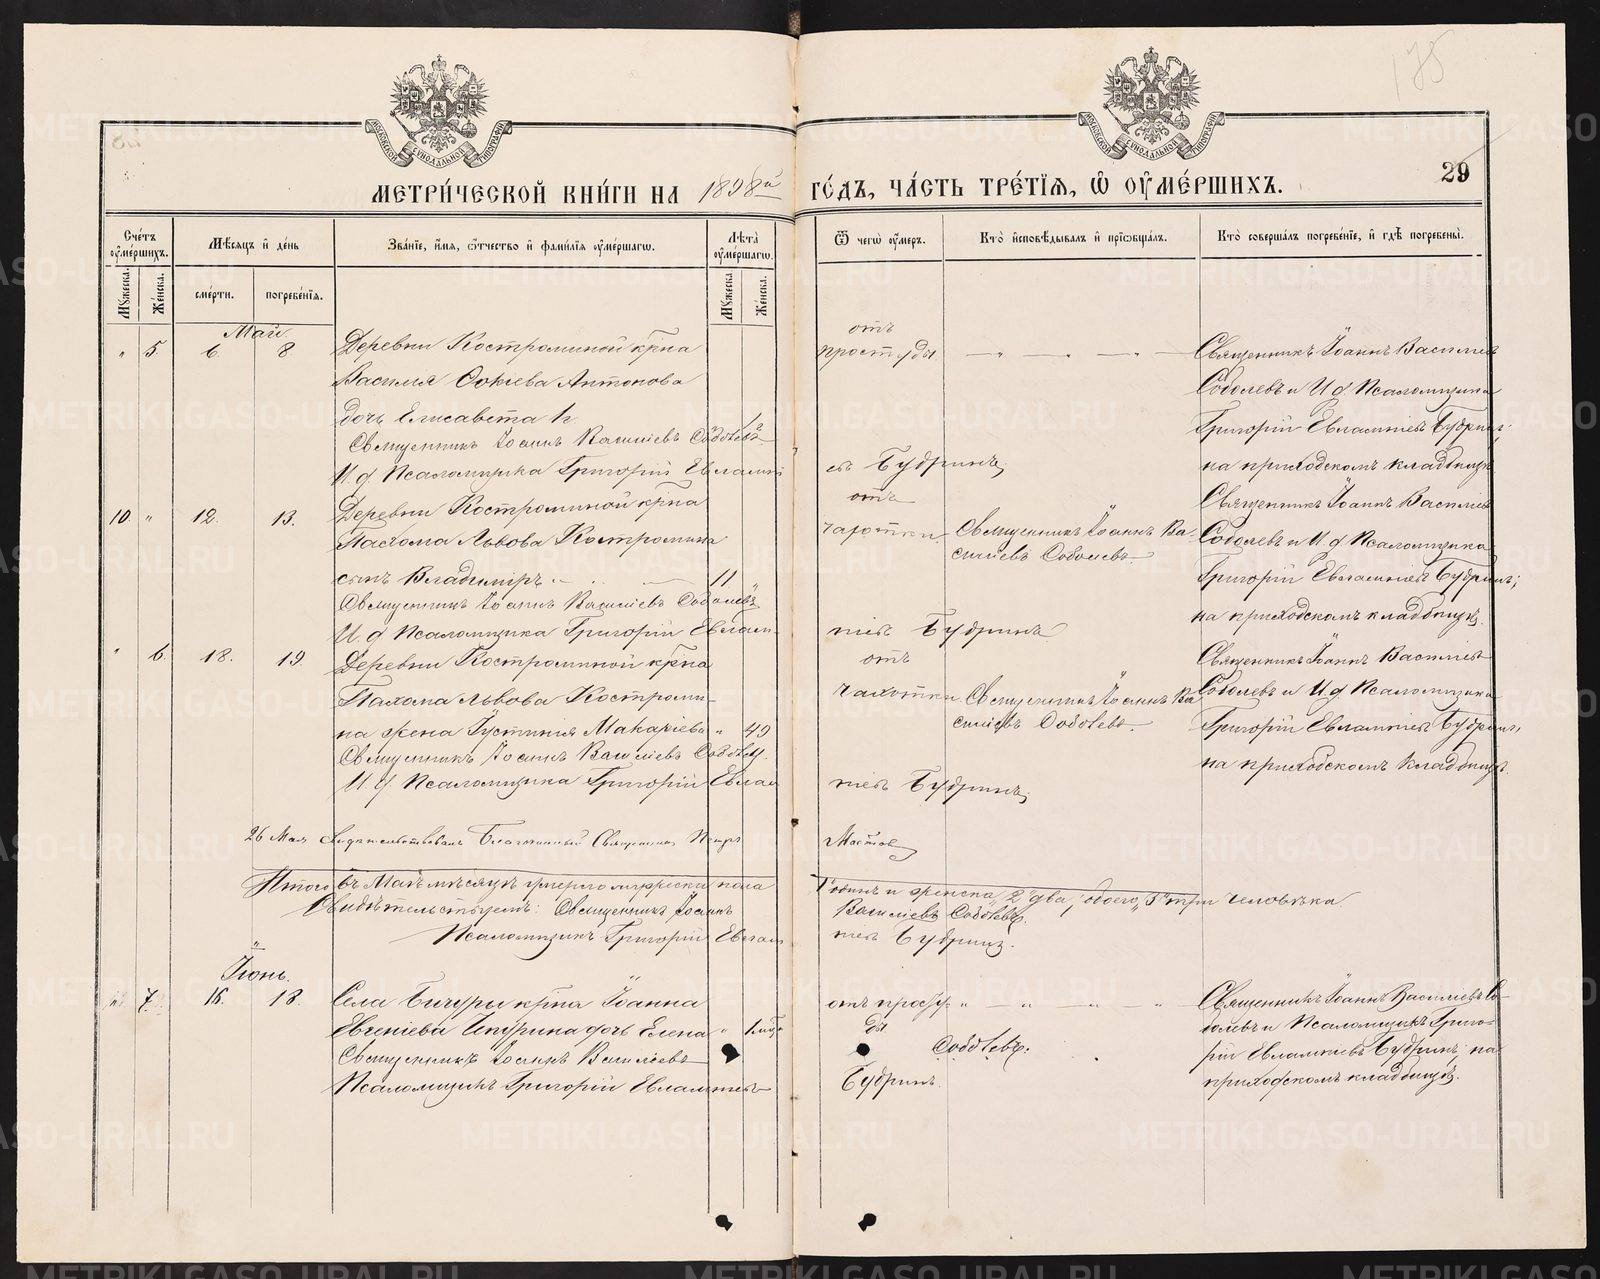 175
29
МЕТРИ́ЧЕСКОЙ КНИ́ГИ НА 1898й ГО́ДЪ, ЧА́СТЬ ТРЕ́ТІЯ, Ѡ ОУМЕ́РШИХЪ.
Сче́тъ оуме́ршихъ.
Мꙋжеска.
Же́нска.
Мѣ́сяцъ и де́нь
сме́рти.
погребе́нія.
Зва́ніе, и́мя, ѻ҆́тчество и фами́лія оуме́ршагѡ.
Лѣ́та оуме́ршагѡ.
Мꙋжеска
Же́нска.
Ѿ чегѡ̀ оу҆́меръ.
Кто̀ и҆сповѣ́дывалъ и҆ прїѡбща́лъ.
Кто̀ соверша́лъ погребе́нїе, и҆ гдѣ̀ погребены̀.
Май
" 5. 6. 8 Деревни Костроминой кр҃на
Василія Антонова
дочь Елисавета
отъ простуды
Священникъ Іоаннъ Василіевъ
Соболевъ и И. д. Псаломщика
Григорій Евлампіевъ Будринъ;
на приходскомъ кладбищѣ
Священникъ Іоаннъ Василіевъ Соболевъ
И. д. Псаломщика Григорій Евлампіевъ Будринъ;
10. " 12. 13. Деревни Костроминой кр҃на
Пахома Львова Костромина
сынъ Владиміръ 11 "
отъ чахотки
Священникъ Іоаннъ Василіевъ Соболевъ.
Священникъ Іоаннъ Василіевъ
Соболевъ и И. д. Псаломщика
Григорій Евлампіевъ Будринъ;
на приходскомъ кладбищѣ.
Священникъ Іоаннъ Василіевъ Соболевъ
И. д. Псаломщика Григорій Евлампіевъ Будринъ
" 6. 18. 19. Деревни Костроминой кр҃на
Пахома Львова Костроми-
на жена Іустинія Макаріева " 49
отъ чахотки
Священникъ Іоаннъ Василіевъ Соболевъ.
Священникъ Іоаннъ Василіевъ
Соболевъ и И. д. Псаломщика
Григорій Евлампіевъ Будринъ;
на приходскомъ кладбищѣ.
Священникъ Іоаннъ Василіевъ Соболевъ.
И. д. Псаломщика Григорій Евлампіевъ Будринъ;
26 Мая свидѣтельствовалъ Благочинный Священникъ Петръ
Итого въ Маѣ мѣсяцѣ умерло мужеска пола 1 одинъ и женска 2 два, обоего 3 три человѣка
Свидѣтельствуемъ: Священникъ Іоаннъ Василіевъ Соболевъ.
Псаломщикъ Григорій Евлампіевъ Будринъ.
Іюнь.
" 7. 16. 18. Села Бичуры кр҃на Іоанна
Евгеніева дочь Елена "
отъ простуды
Священникъ Іоаннъ Василіевъ Со-
болевъ и Псаломщикъ Григо-
рій Евлампіевъ Будринъ; на
приходскомъ кладбищѣ.
Священникъ Іоаннъ Василіевъ Соболевъ.
Псаломщикъ Григорій Евлампіевъ Будринъ.
METRIKI.GASO-URAL.RU